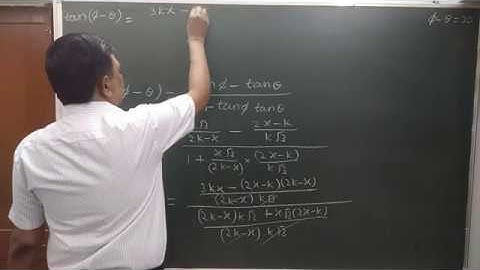 tan(ϕ-θ) = 3kx -
ϕ-θ = 30
ϕ - θ) = tanϕ - tanθ
tanϕ tanθ
√3
2k-x - 2x-k
k√3
1 + x√3
(2k-x) × (2x-k)
k√3
= 3kx-(2x-k)(2k-x)
(2k-x) k√3
(2k-x)k√3 + x√3(2x-k)
(2k-x) k√3